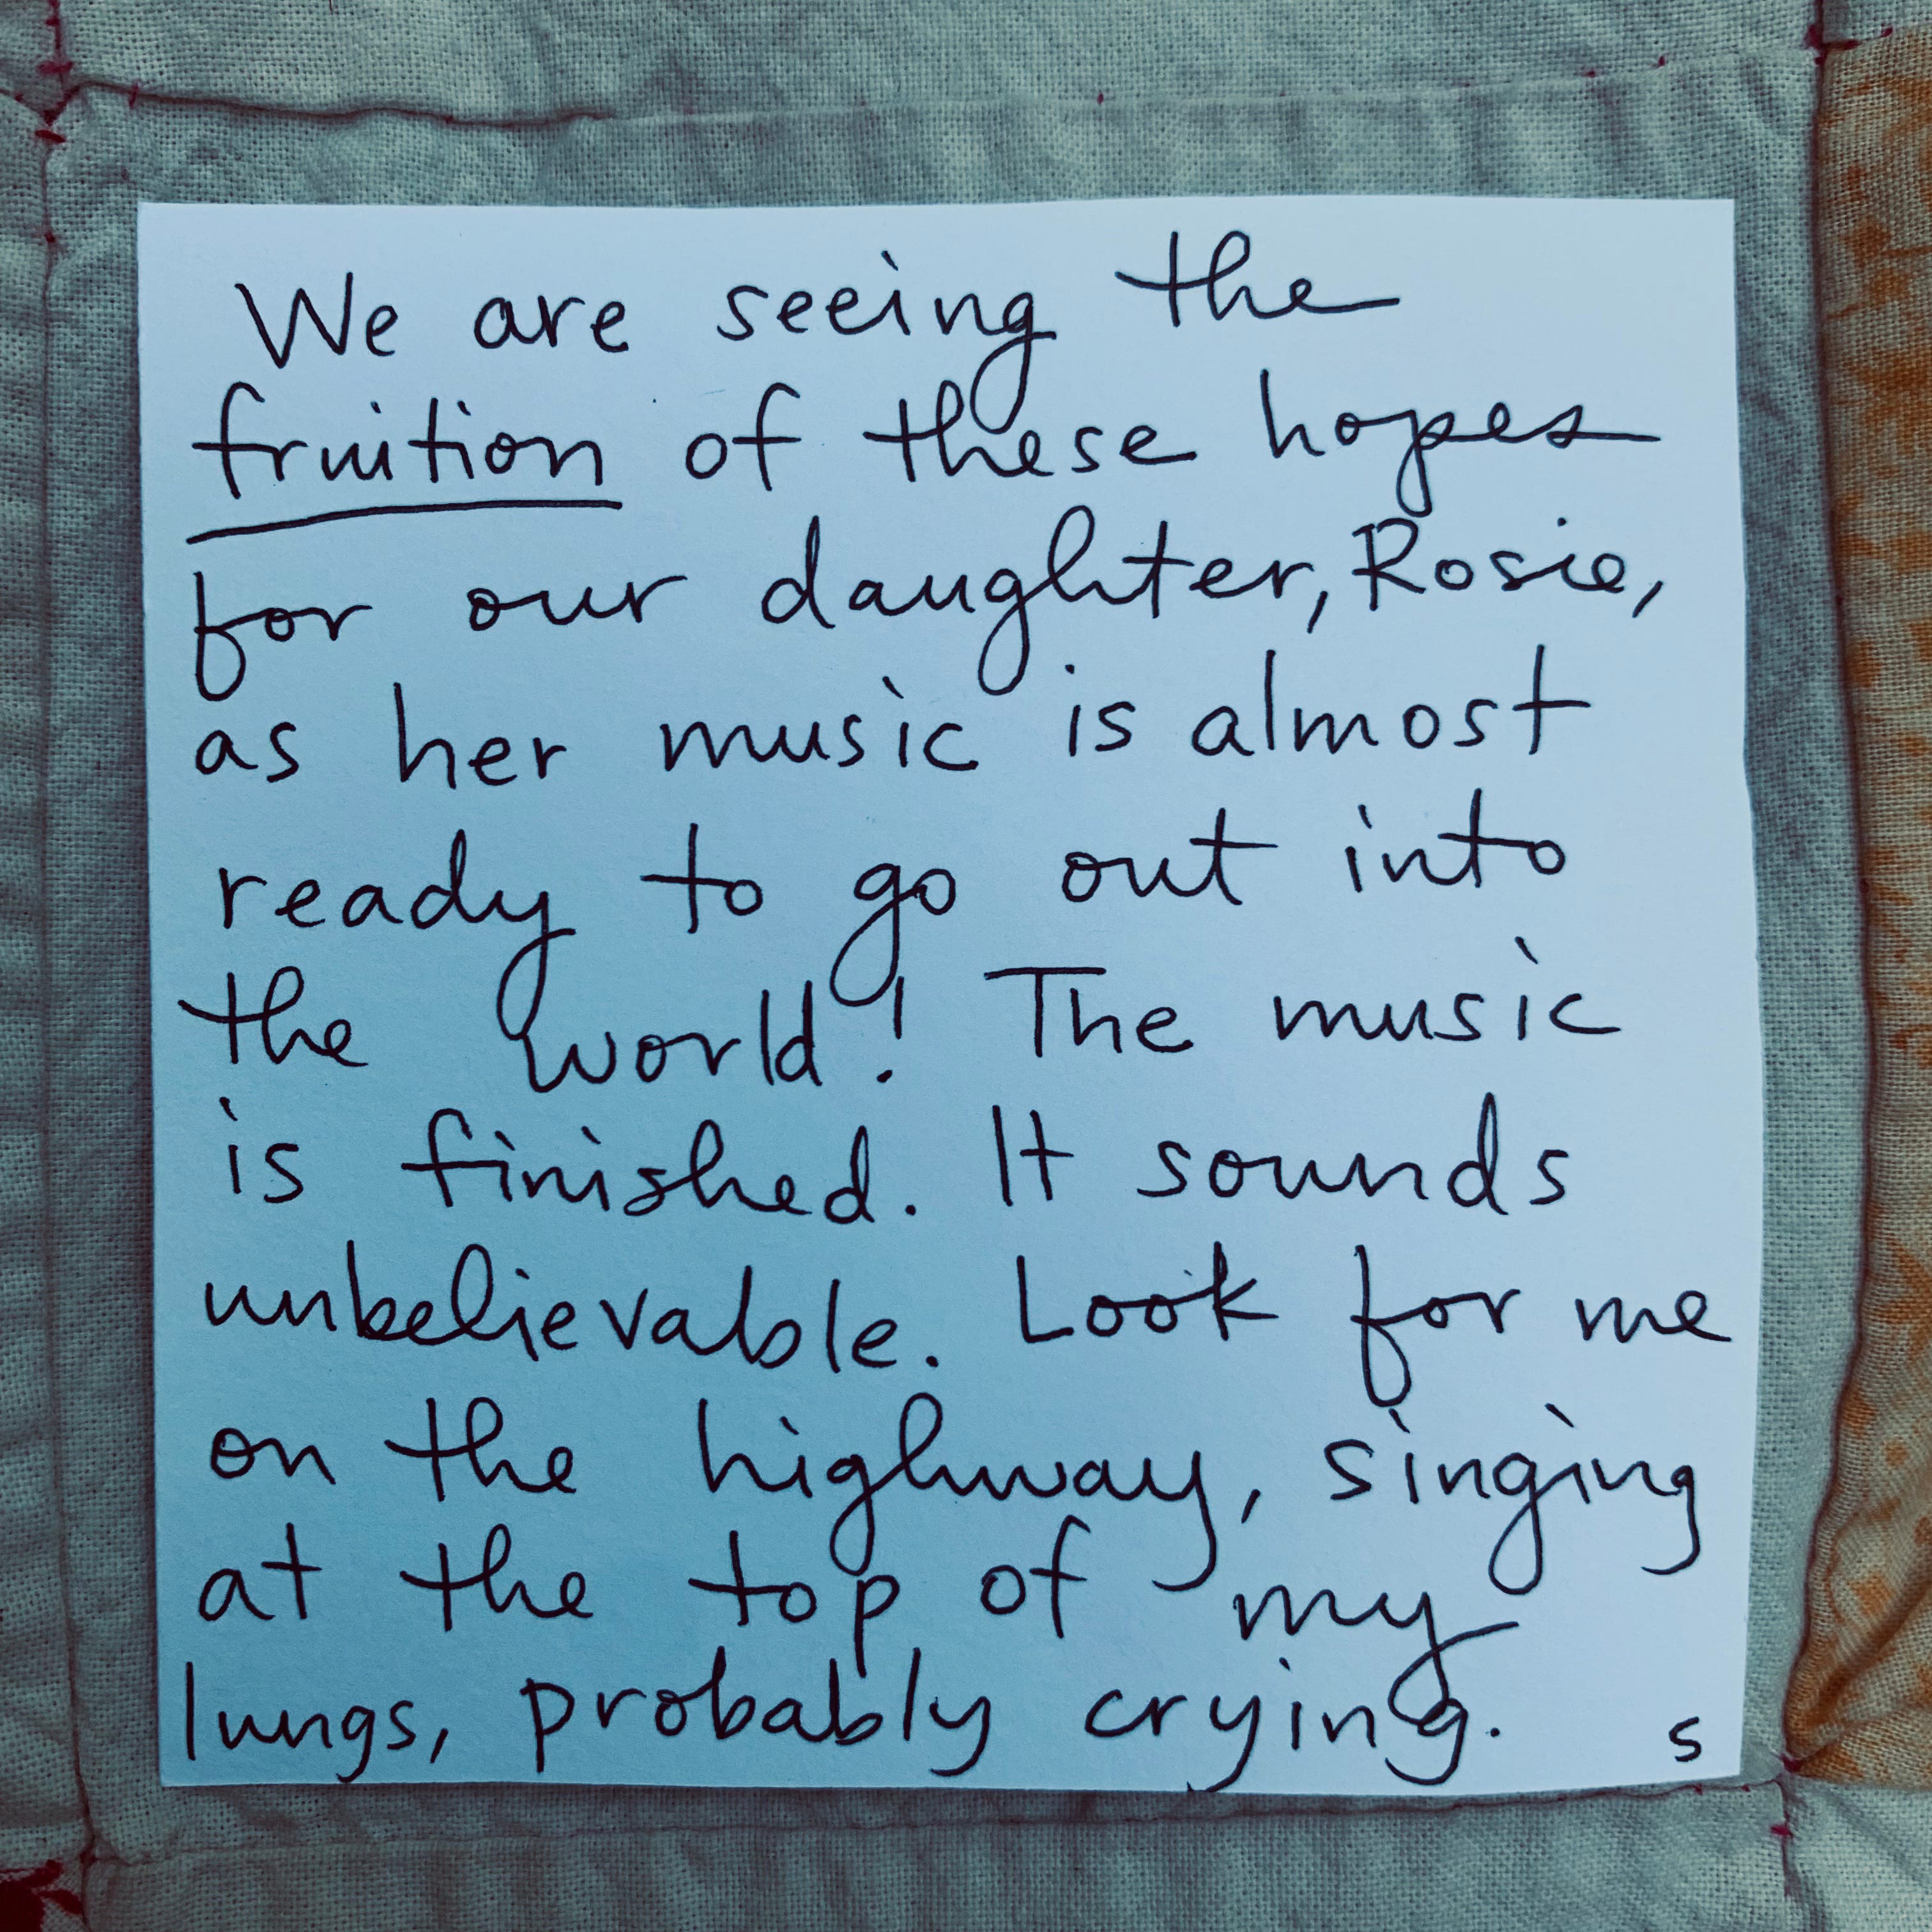 We are seeing the
fruition of these hopes
for our daughter, Rosie,
as her music is almost
ready to go out into
the world! The music
is finished. It sounds
unbelievable. Look for me
on the highway, singing
at the top of my
lungs, probably crying. s